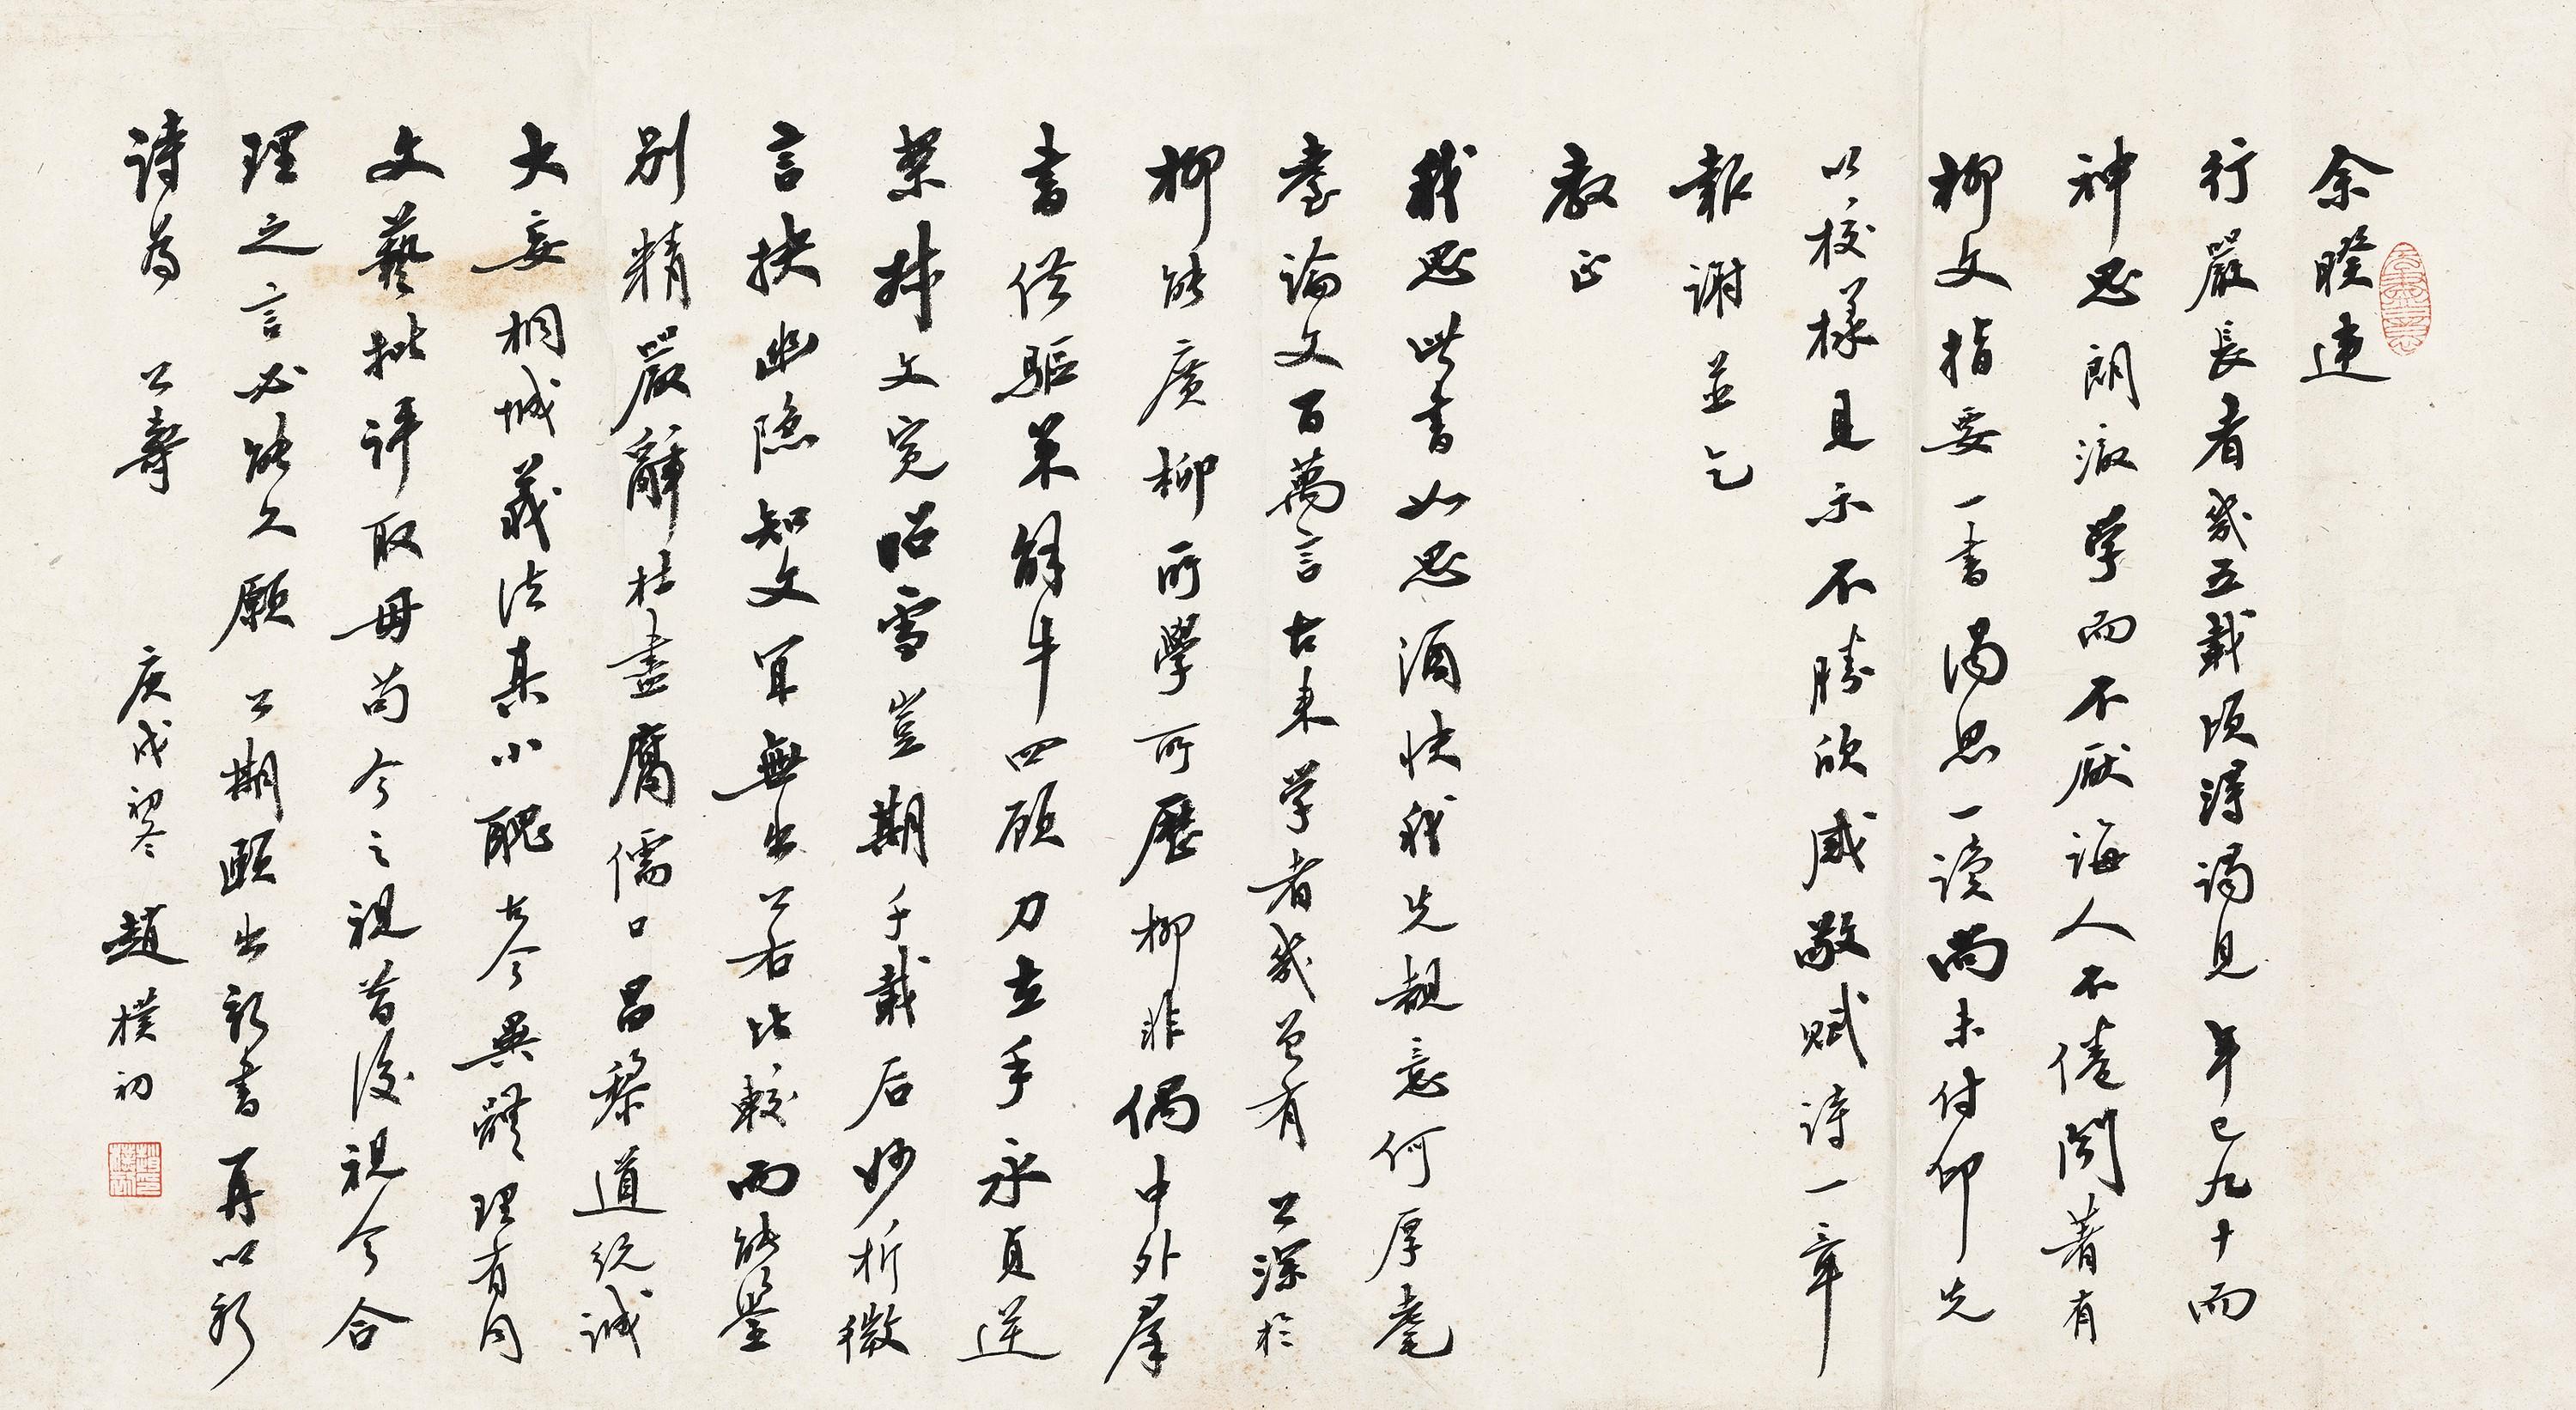 余睽違
行嚴長者幾五載頃得謁見年已九十而
神思朗澈学而不厭誨人不倦聞著有
柳文指要一書渴思一讀尚未付印先
以校樣見示不勝欣感敬賦詩一章
報謝並乞
教正
我思此書如思酒快我先覩意何厚耄
耋論文百萬言古来学者幾曾有公深於
柳能廣柳所學所歷柳非偶中外羣
書供驅策解牛四顧刀在手永貞逆
案採文冤昭雪豈期千載后妙析微
言抉幽隐知文罪無出公右比較而能鑒
别精嚴辭枯盡腐儒口昌黎道統誠
大妄桐城義法真小醜古今異體理有同
文藝批评取毋苟今之視昔後視今合
理之言必能久願公期頤出新書再以新
詩為公壽庚戌初冬趙樸初